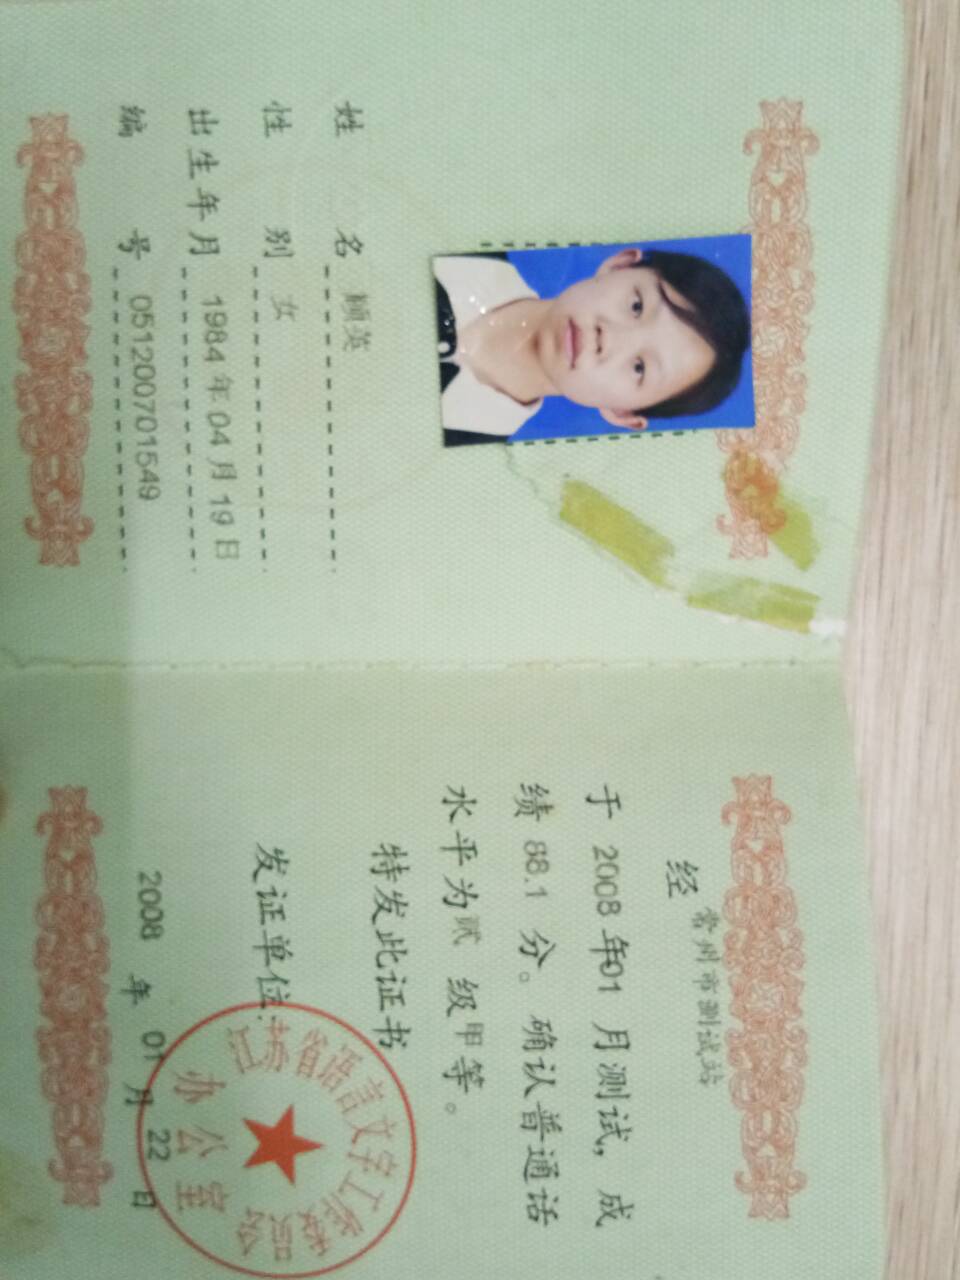 姓 名 顾英
性 别 女
出生年月 1984年04月19日
编 号 051200701549
经 常州市测试站
于 2008 年01 月测试，成
绩 88.1 分。确认普通话
水平为贰 级甲等。
特发此证书
发证单位：
江苏省语言文字工作委员会
办公室
2008 年 01 月 22 日